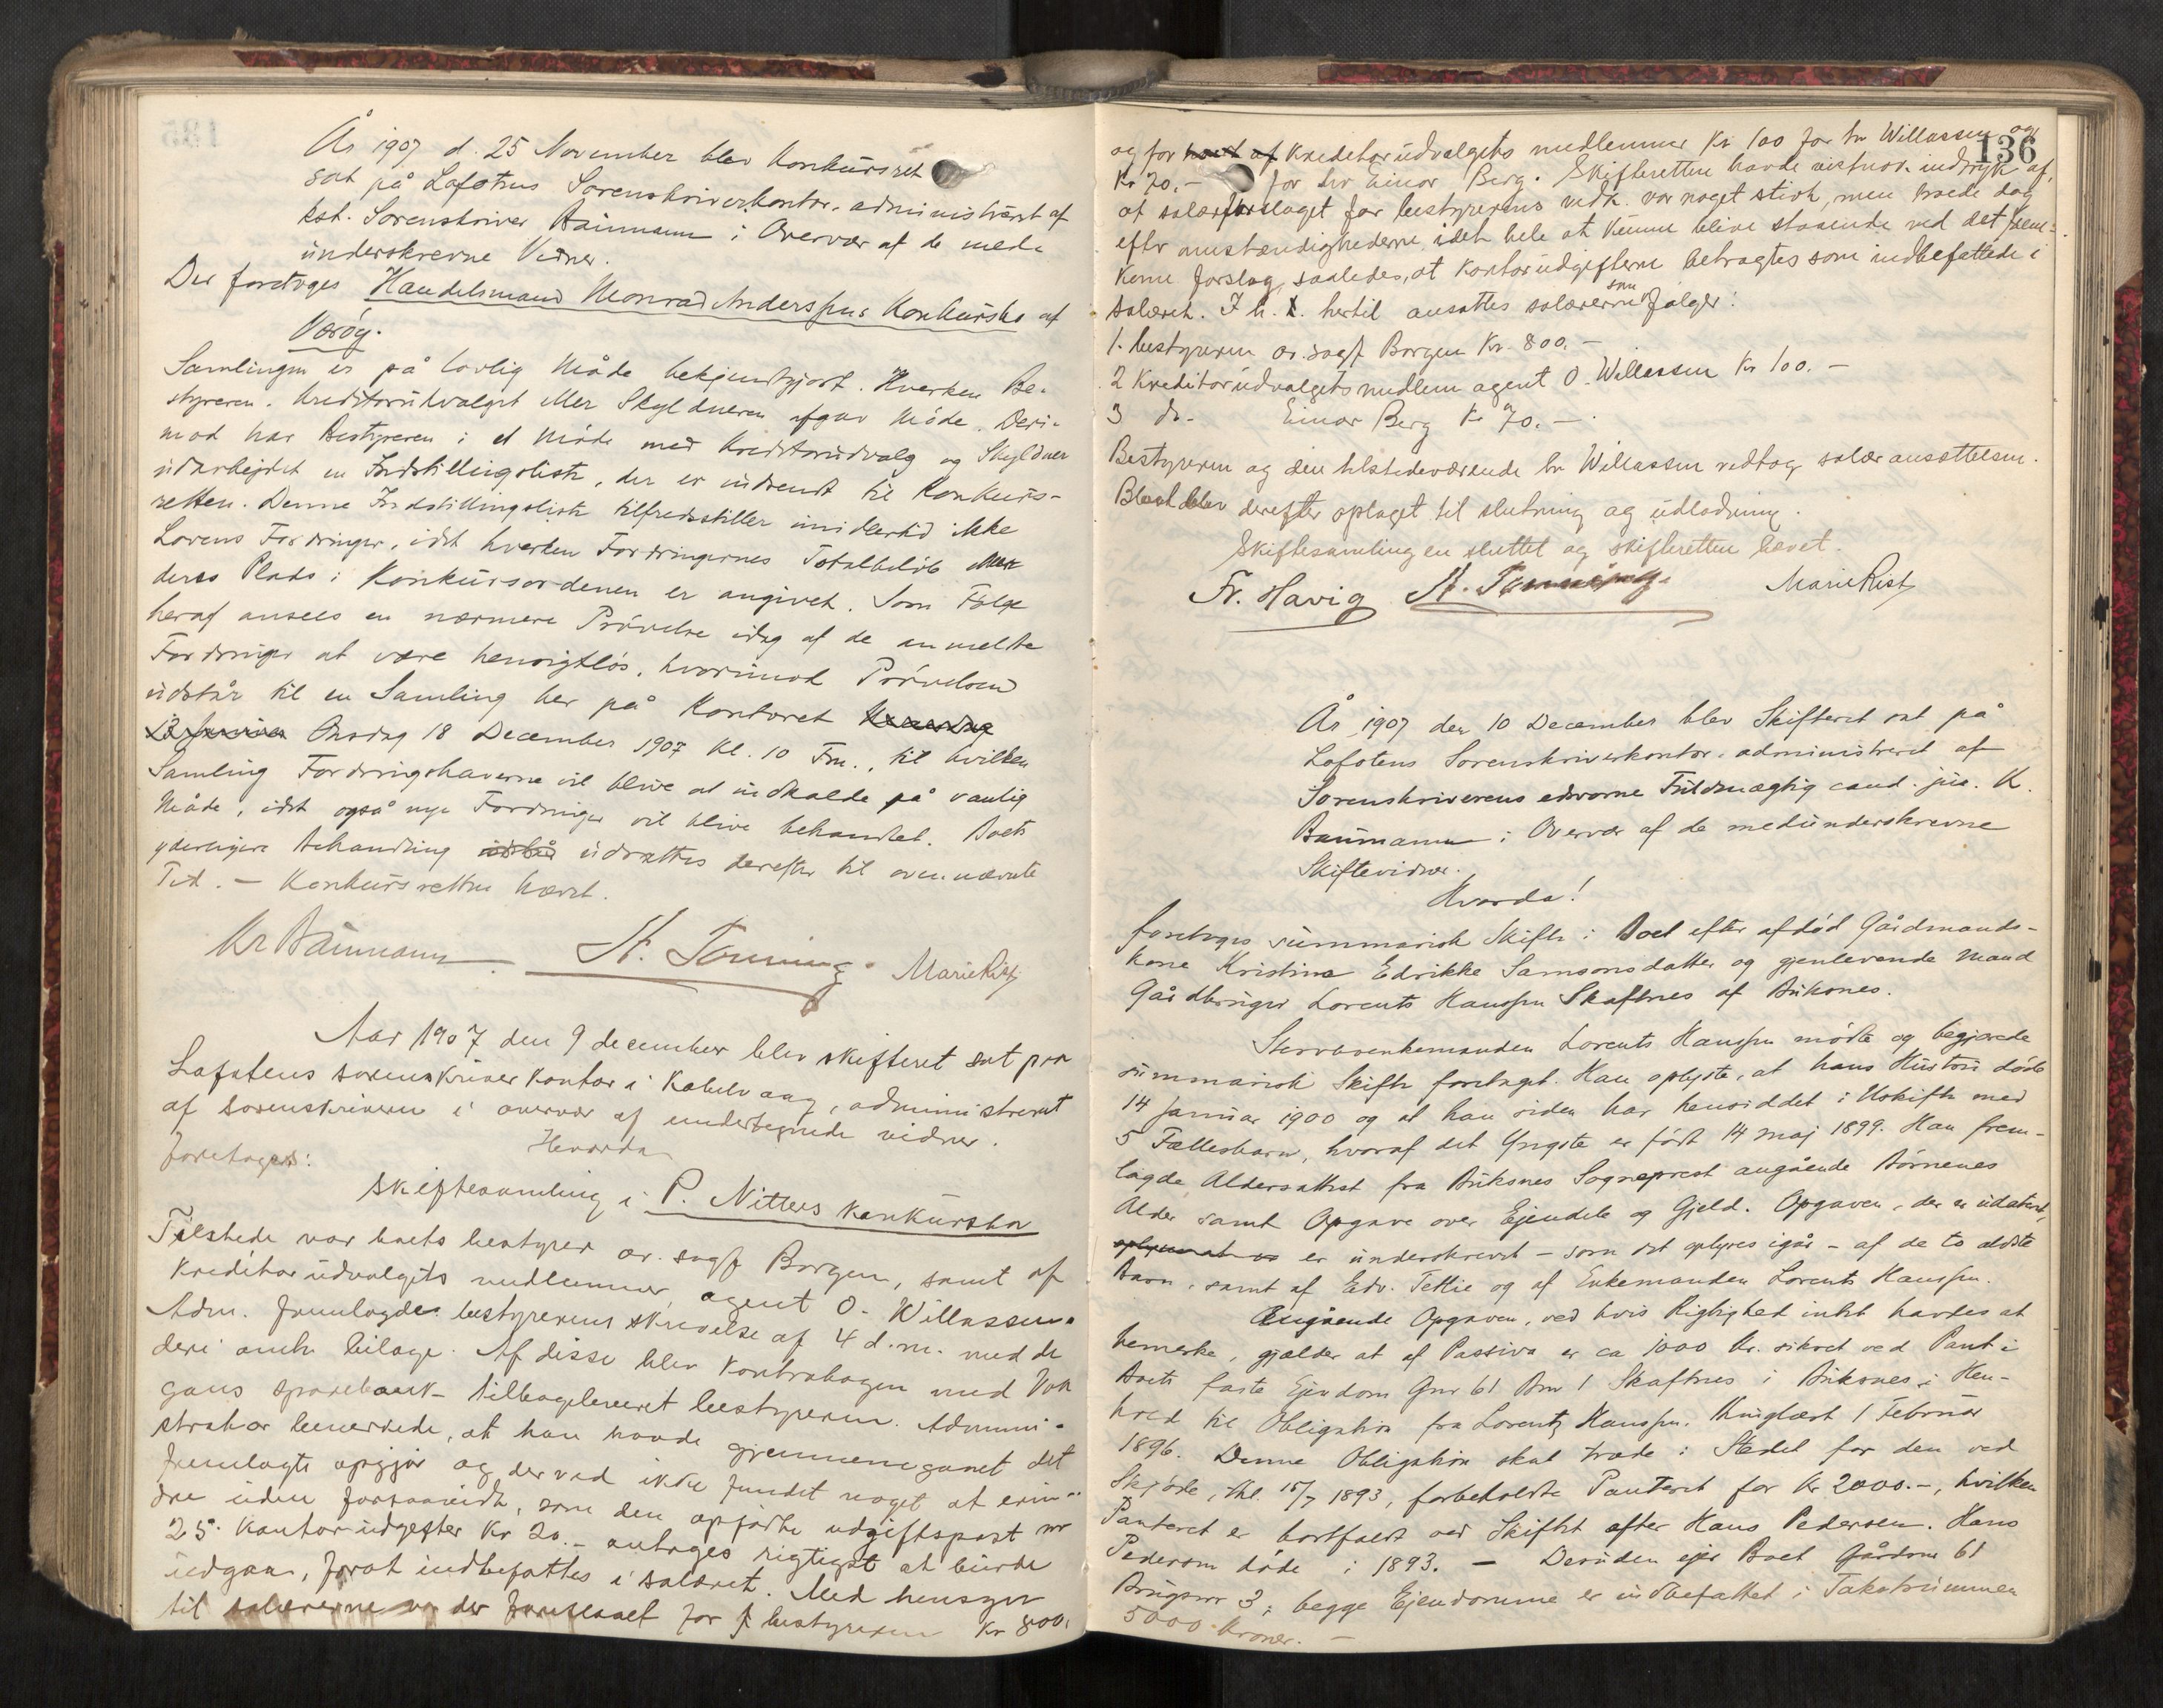 År 1907 d. 25 November blev Konkursret
sat på Lofotens Sorenskriverkontor, administreret af
kst. Sorenskriver Baumann i Overvær af de med-
underskrevne Vidner.
Der foretoges Handelsmand Monrad Anderssens Konkursbo af
Værøy.
Samlingen er på lovlig Måde bekjendtgjort. Hverken Be-
styreren, Kreditorudvalget eller Skyldneren afgav Møde. Deri-
mod har Bestyreren i et Møde med Kreditorudvalg og Skyldner
udarbejdet en Indstillingsliste, der er indsendt til Konkurs-
retten. Denne Indstillingsliste tilfredsstiller imidlertid ikke
Lovens Fordringer, idet hverken Fordringernes Totalbeløb eller
deres Plads i Konkursordenen er angivet. Som Følge
heraf ansees en nærmere Prøvelse idag af de anmeldte
Fordringer at være hensigtløs, hvorimod Prøvelsen
udstår til en Samling her på Kontoret
Onsdag 18 December 1907 Kl. 10 Fm., til hvilken
Samling Fordringshaverne vil blive at indkalde på vanlig
Måde, idet også nye Fordringer vil blive behandlet. Boets
yderligere Behandling udstår udsættes derefter til ovennævnte
Tid. — Konkursretten hævet.
Kr Baumann St. Tønning Marie Rist
Aar 1907 den 9 december blev skifteret sat paa
Lofotens sorenskriverkontor i Kabelvaag, administreret
af sorenskriveren i overvær af undertegnede vidner.
Hvorda
foretoges:
skiftesamling i P. Nitters konkursbo
Tilstede var boets bestyrer or. sagf Borgen, samt af
kreditorudvalgets medlemmer, agent O. Willassen.
Adm. fremlagdes bestyrerens skrivelse af 4 d.m. med de
deri anh. bilage. Af disse blev kontrabogen med Vaa
gans sparebank tilbageleveret bestyreren. Admini-
strator bemerkede, at han havde gjennemgaaet det
fremlagte opgjør og derved ikke fundet noget at erin-
dre uden forsaavidt, som den opførte udgiftspost nr
25. Kontorudgifter Kr 20.— antages rigtigst at burde
udgaa, forat indbefattes i salæret. Med hensyn
til salærerne var der foreslaaet for bestyreren Kr 800.
136
og for hvert af kreditorudvalgets medlemmer Kr 100 for hr Willassen og
Kr 70.— for hr Einar Berg. Skifteretten havde indtryk af,
at salærforslaget for bestyrerens vedk. var noget stivt, men troede dog
efter omstændighederne idet hele at kunne blive staaende ved det frem-
komne forslag, saaledes, at kontorudgifterne betragtes som indbefattede i
salæret. I h. t. hertil ansattes salærerne som følger:
1. bestyreren or. sagf Borgen Kr. 800.—
2 Kreditorudvalgets medlem agent O. Willassen Kr 100.—
3 do. Einar Berg Kr 70.—
Bestyreren og den tilstedeværende hr Willassen vedtog salæransættelsen.
Boet blev derefter optaget til slutning og udlodning.
Skiftesamlingen sluttet og skifteretten hævet.
Fr. Havig St. Tønning Marie Rist
År 1907 den 10 December blev Skifteret sat på
Lofotens Sorenskriverkontor, administreret af
Sorenskriverens edsvorne Fuldmægtig cand. jur. K.
Baumann i Overvær af de medunderskrevne
Skiftevidner.
Hvorda!
foretoges summarisk Skifte i Boet efter afdød Gårdmands-
kone Kristine Edrikke Samsonsdatter og gjenlevende Mand
Gårdbruger Lorents Hanssen Skaftnes af Buksnes.
Stervboenkemanden Lorents Hanssen mødte og begjærede
summarisk Skifte foretaget. Han oplyste, at hans Hustru døde
14 Januar 1900 og at han siden har hensiddet i Uskifte med
5 Fællesbarn, hvoraf det Yngste er født 14 Maj 1899. Han frem-
lagde Aldersattest fra Buksnes Sogneprest angående Børnenes
Alder samt Opgave over Ejendele og Gjeld. Opgaven, der er udateret,
er underskrevet — som det oplyses igår — af de to ældste
Barn, samt af Edv. Tettie og af Enkemanden Lorents Hanssen.
Angående Opgaven, ved hvis Rigtighed intet havdes at
bemerke, gjælder at af Passiva er ca 1000 Kr. sikret ved Pant i
Boets faste Ejendom Gnr 61 Bnr 1 Skaftnes i Buksnes i Hen-
hold til Obligation fra Lorentz Hanssen, thinglæst 1 Februar
1896. Denne Obligation skal træde i Stedet for den ved
Skjøde, thl. 15/7 1893, forbeholdte Panteret for Kr 2000.—, hvilken
Panteret er bortfaldt ved Skiftet efter Hans Pedersen. Hans
Pedersen døde i 1893. — Desuden ejer Boet Gårdsnr 61
Brugsnr 3; begge Ejendomme er indbefattet i Takstsummen
5000 Kroner. —